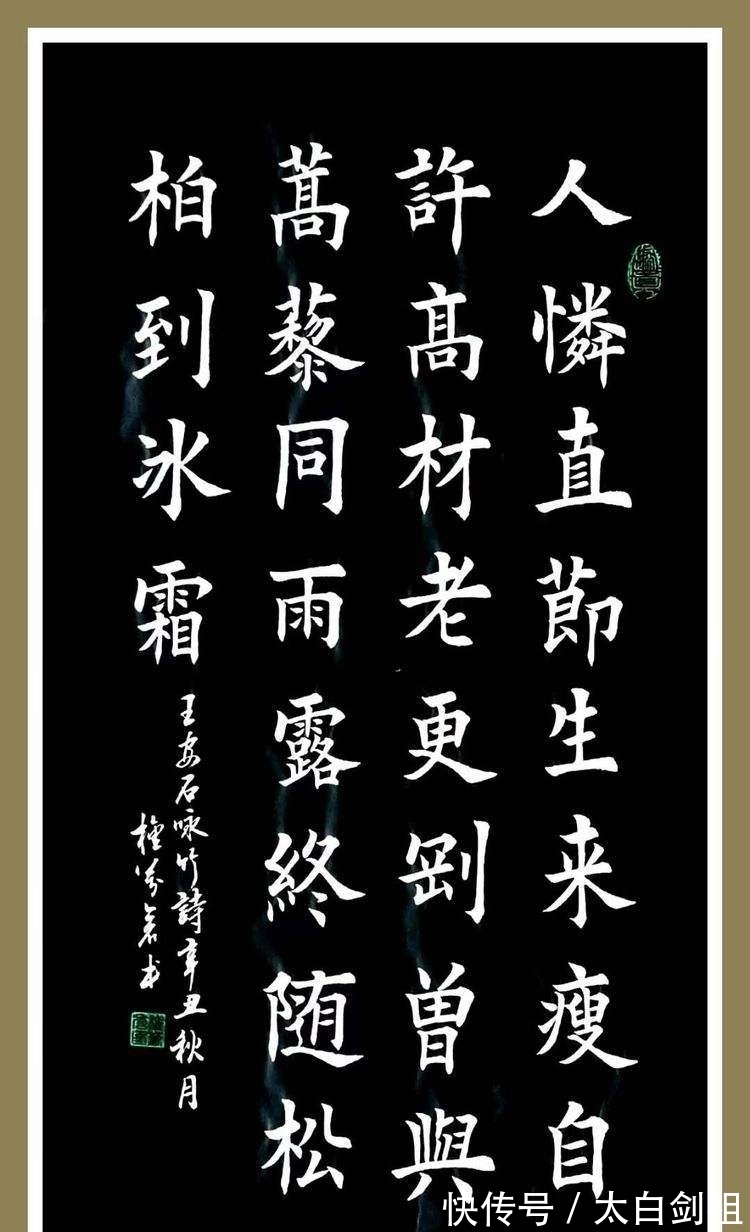 人憐直節生来瘦自
許髙材老更剛曾與
蒿藜同雨露終随松
柏到氷霜
王安石咏竹詩辛丑秋月
書
快传号 / 太白剑姐